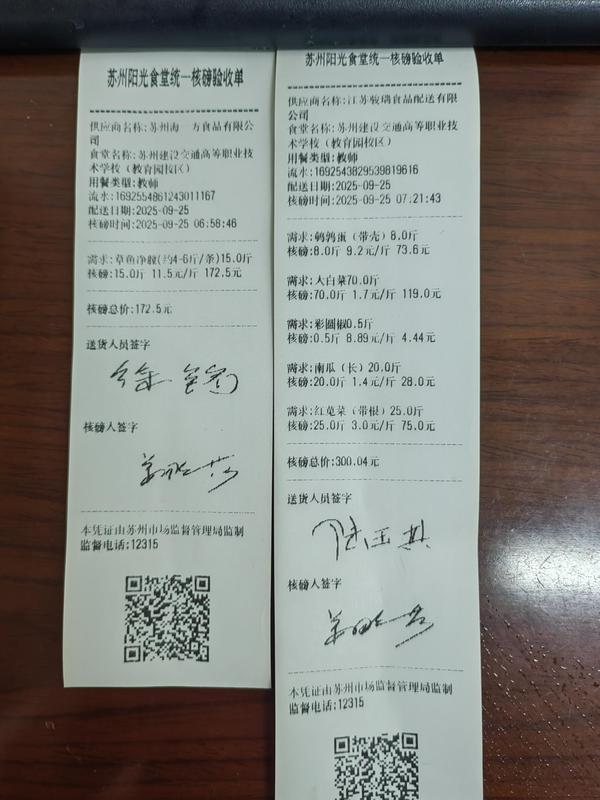 苏州阳光食堂统一核磅验收单
供应商名称:苏州海一方食品有限公
司
食堂名称:苏州建设交通高等职业技
术学校(教育园校区)
用餐类型:教师
流水:1692554861243011167
配送日期:2025-09-25
核磅时间:2025-09-25 06:58:46
需求:草鱼净膛(约4-6斤/条)15.0斤
核磅:15.0斤 11.5元/斤 172.5元
核磅总价:172.5元
送货人员签字
核磅人签字
本凭证由苏州市场监督管理局监制
监督电话:12315
苏州阳光食堂统一核磅验收单
供应商名称:江苏骏瑞食品配送有限
公司
食堂名称:苏州建设交通高等职业技
术学校(教育园校区)
用餐类型:教师
流水:1692543829539819616
配送日期:2025-09-25
核磅时间:2025-09-25 07:21:43
需求:鹌鹑蛋(带壳)8.0斤
核磅:8.0斤 9.2元/斤 73.6元
需求:大白菜70.0斤
核磅:70.0斤 1.7元/斤 119.0元
需求:彩圆椒0.5斤
核磅:0.5斤 8.89元/斤 4.44元
需求:南瓜(长)20.0斤
核磅:20.0斤 1.4元/斤 28.0元
需求:红苋菜(带根)25.0斤
核磅:25.0斤 3.0元/斤 75.0元
核磅总价:300.04元
送货人员签字
核磅人签字
本凭证由苏州市场监督管理局监制
监督电话:12315